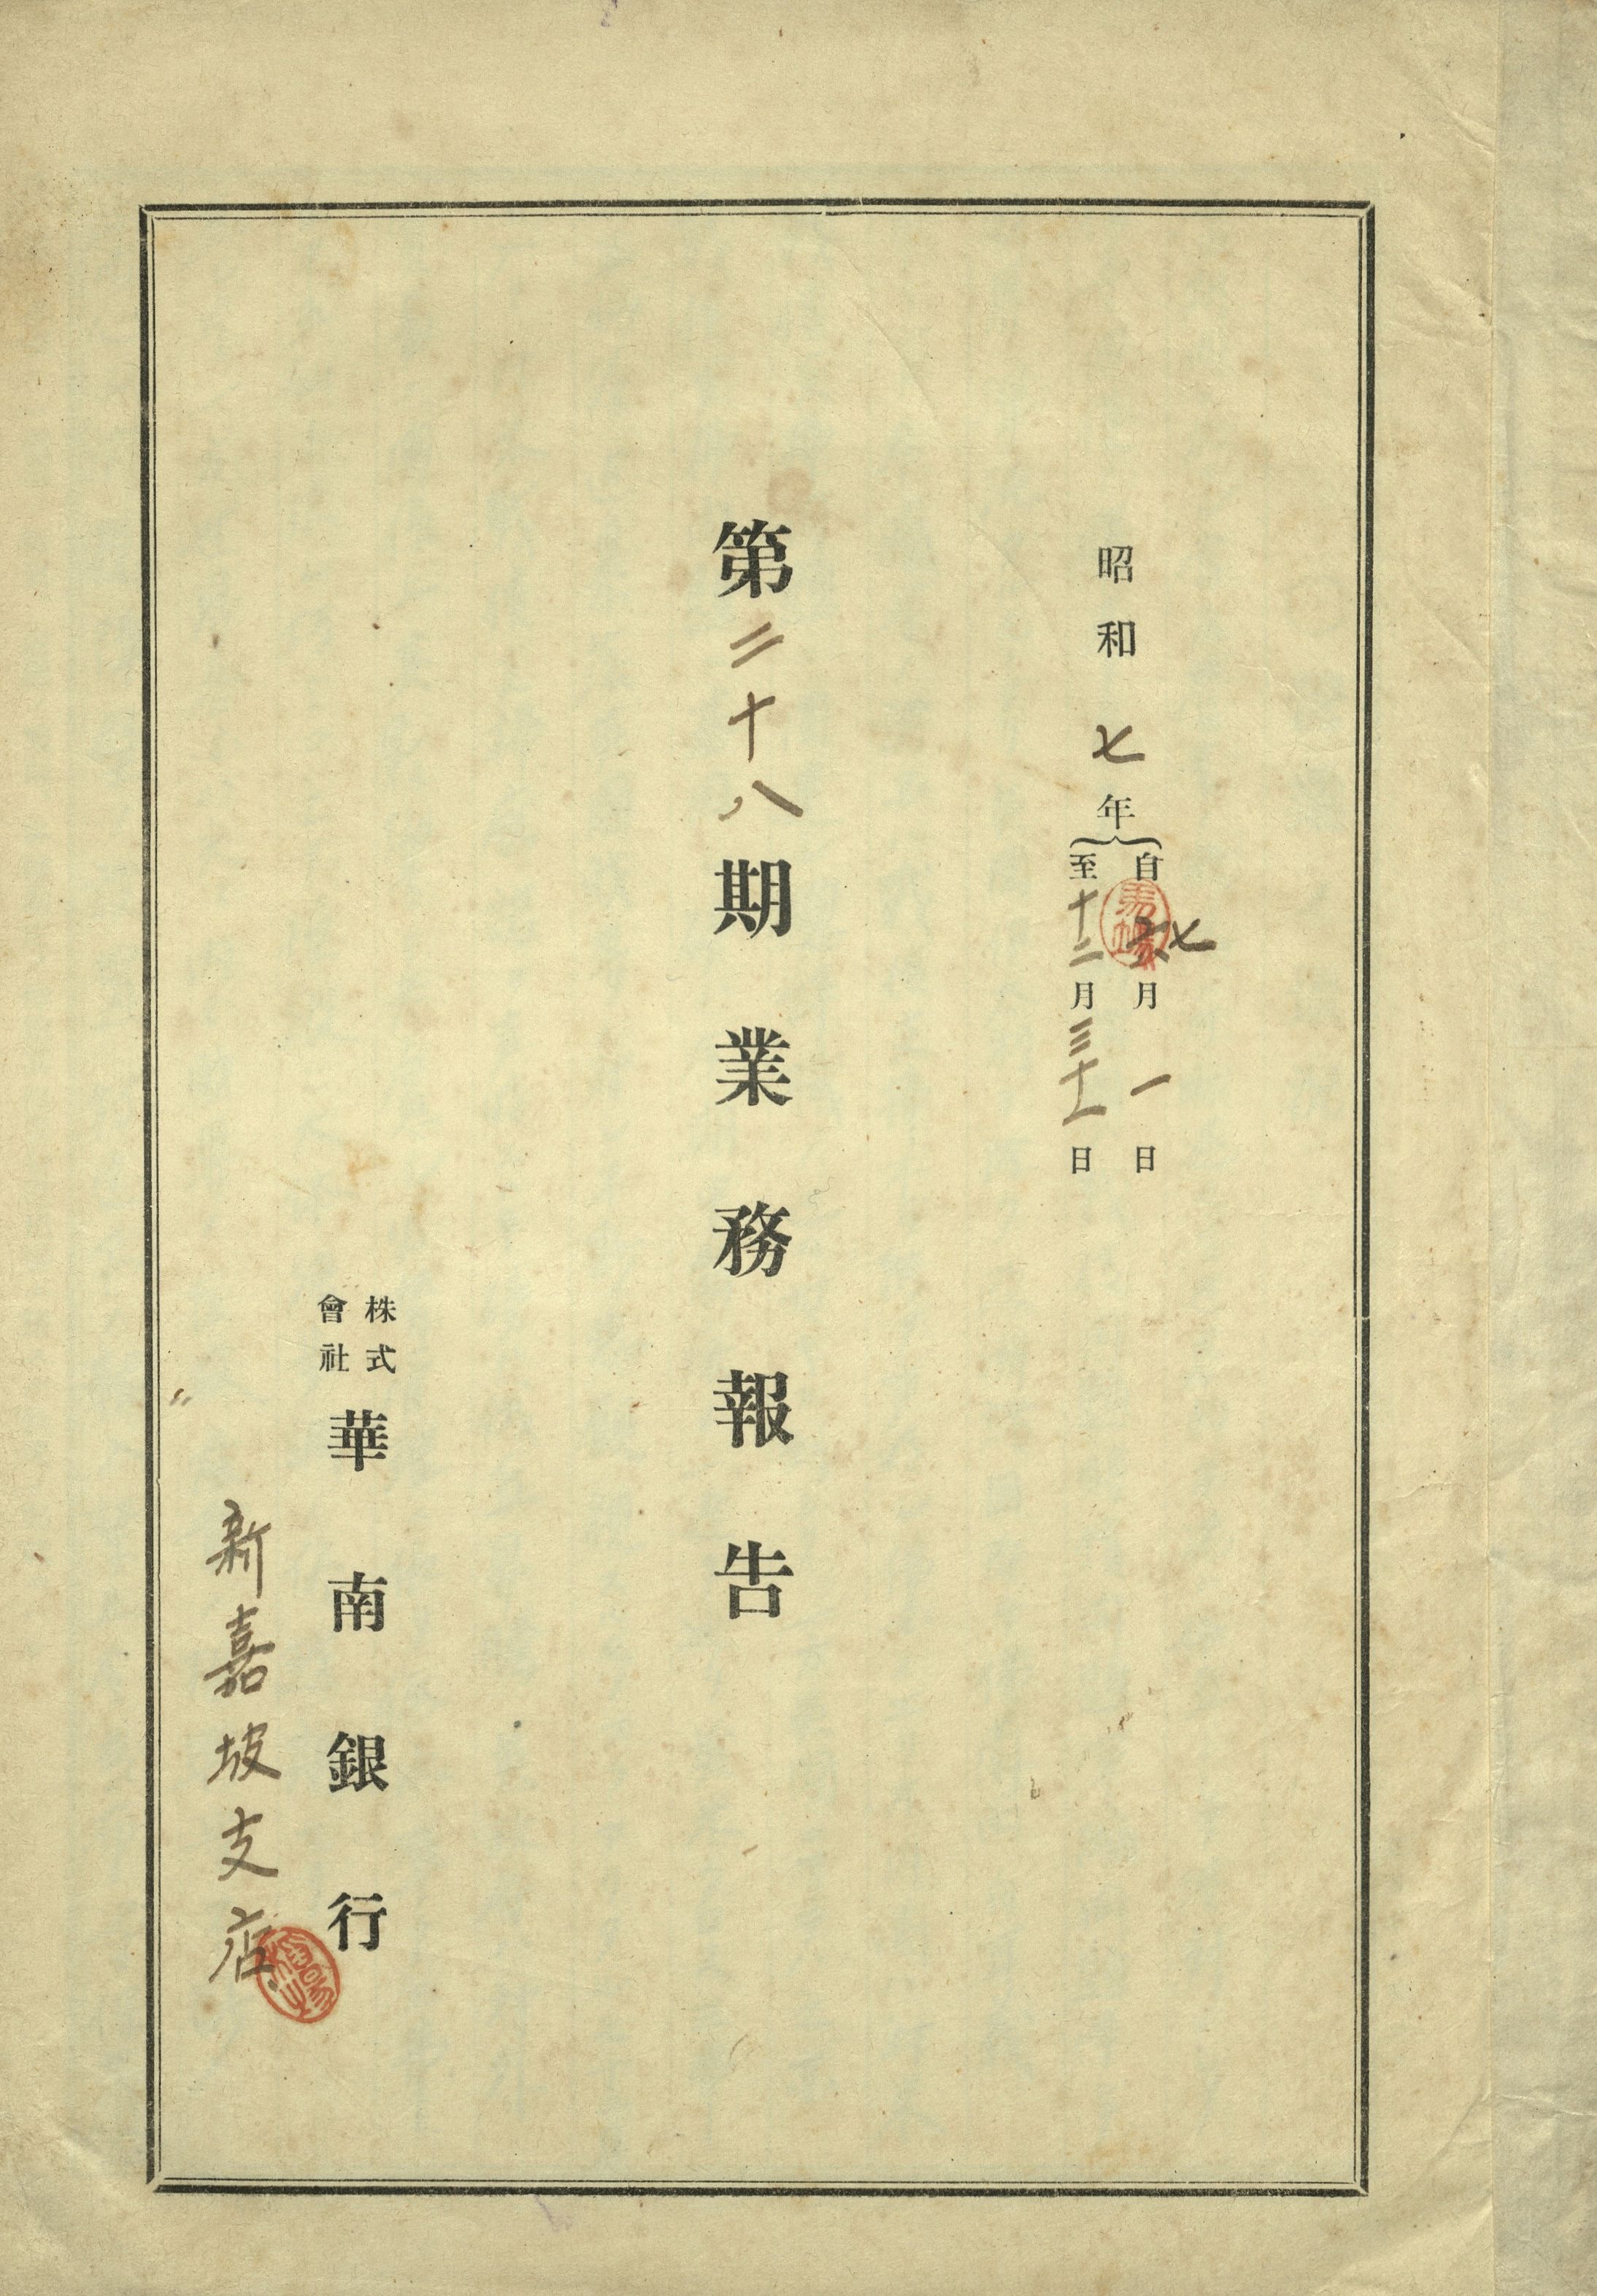 昭和七年
自七月一日
至十二月三十一日
第二十八期業務報告
株式
會社
華南銀行
新嘉坡支店